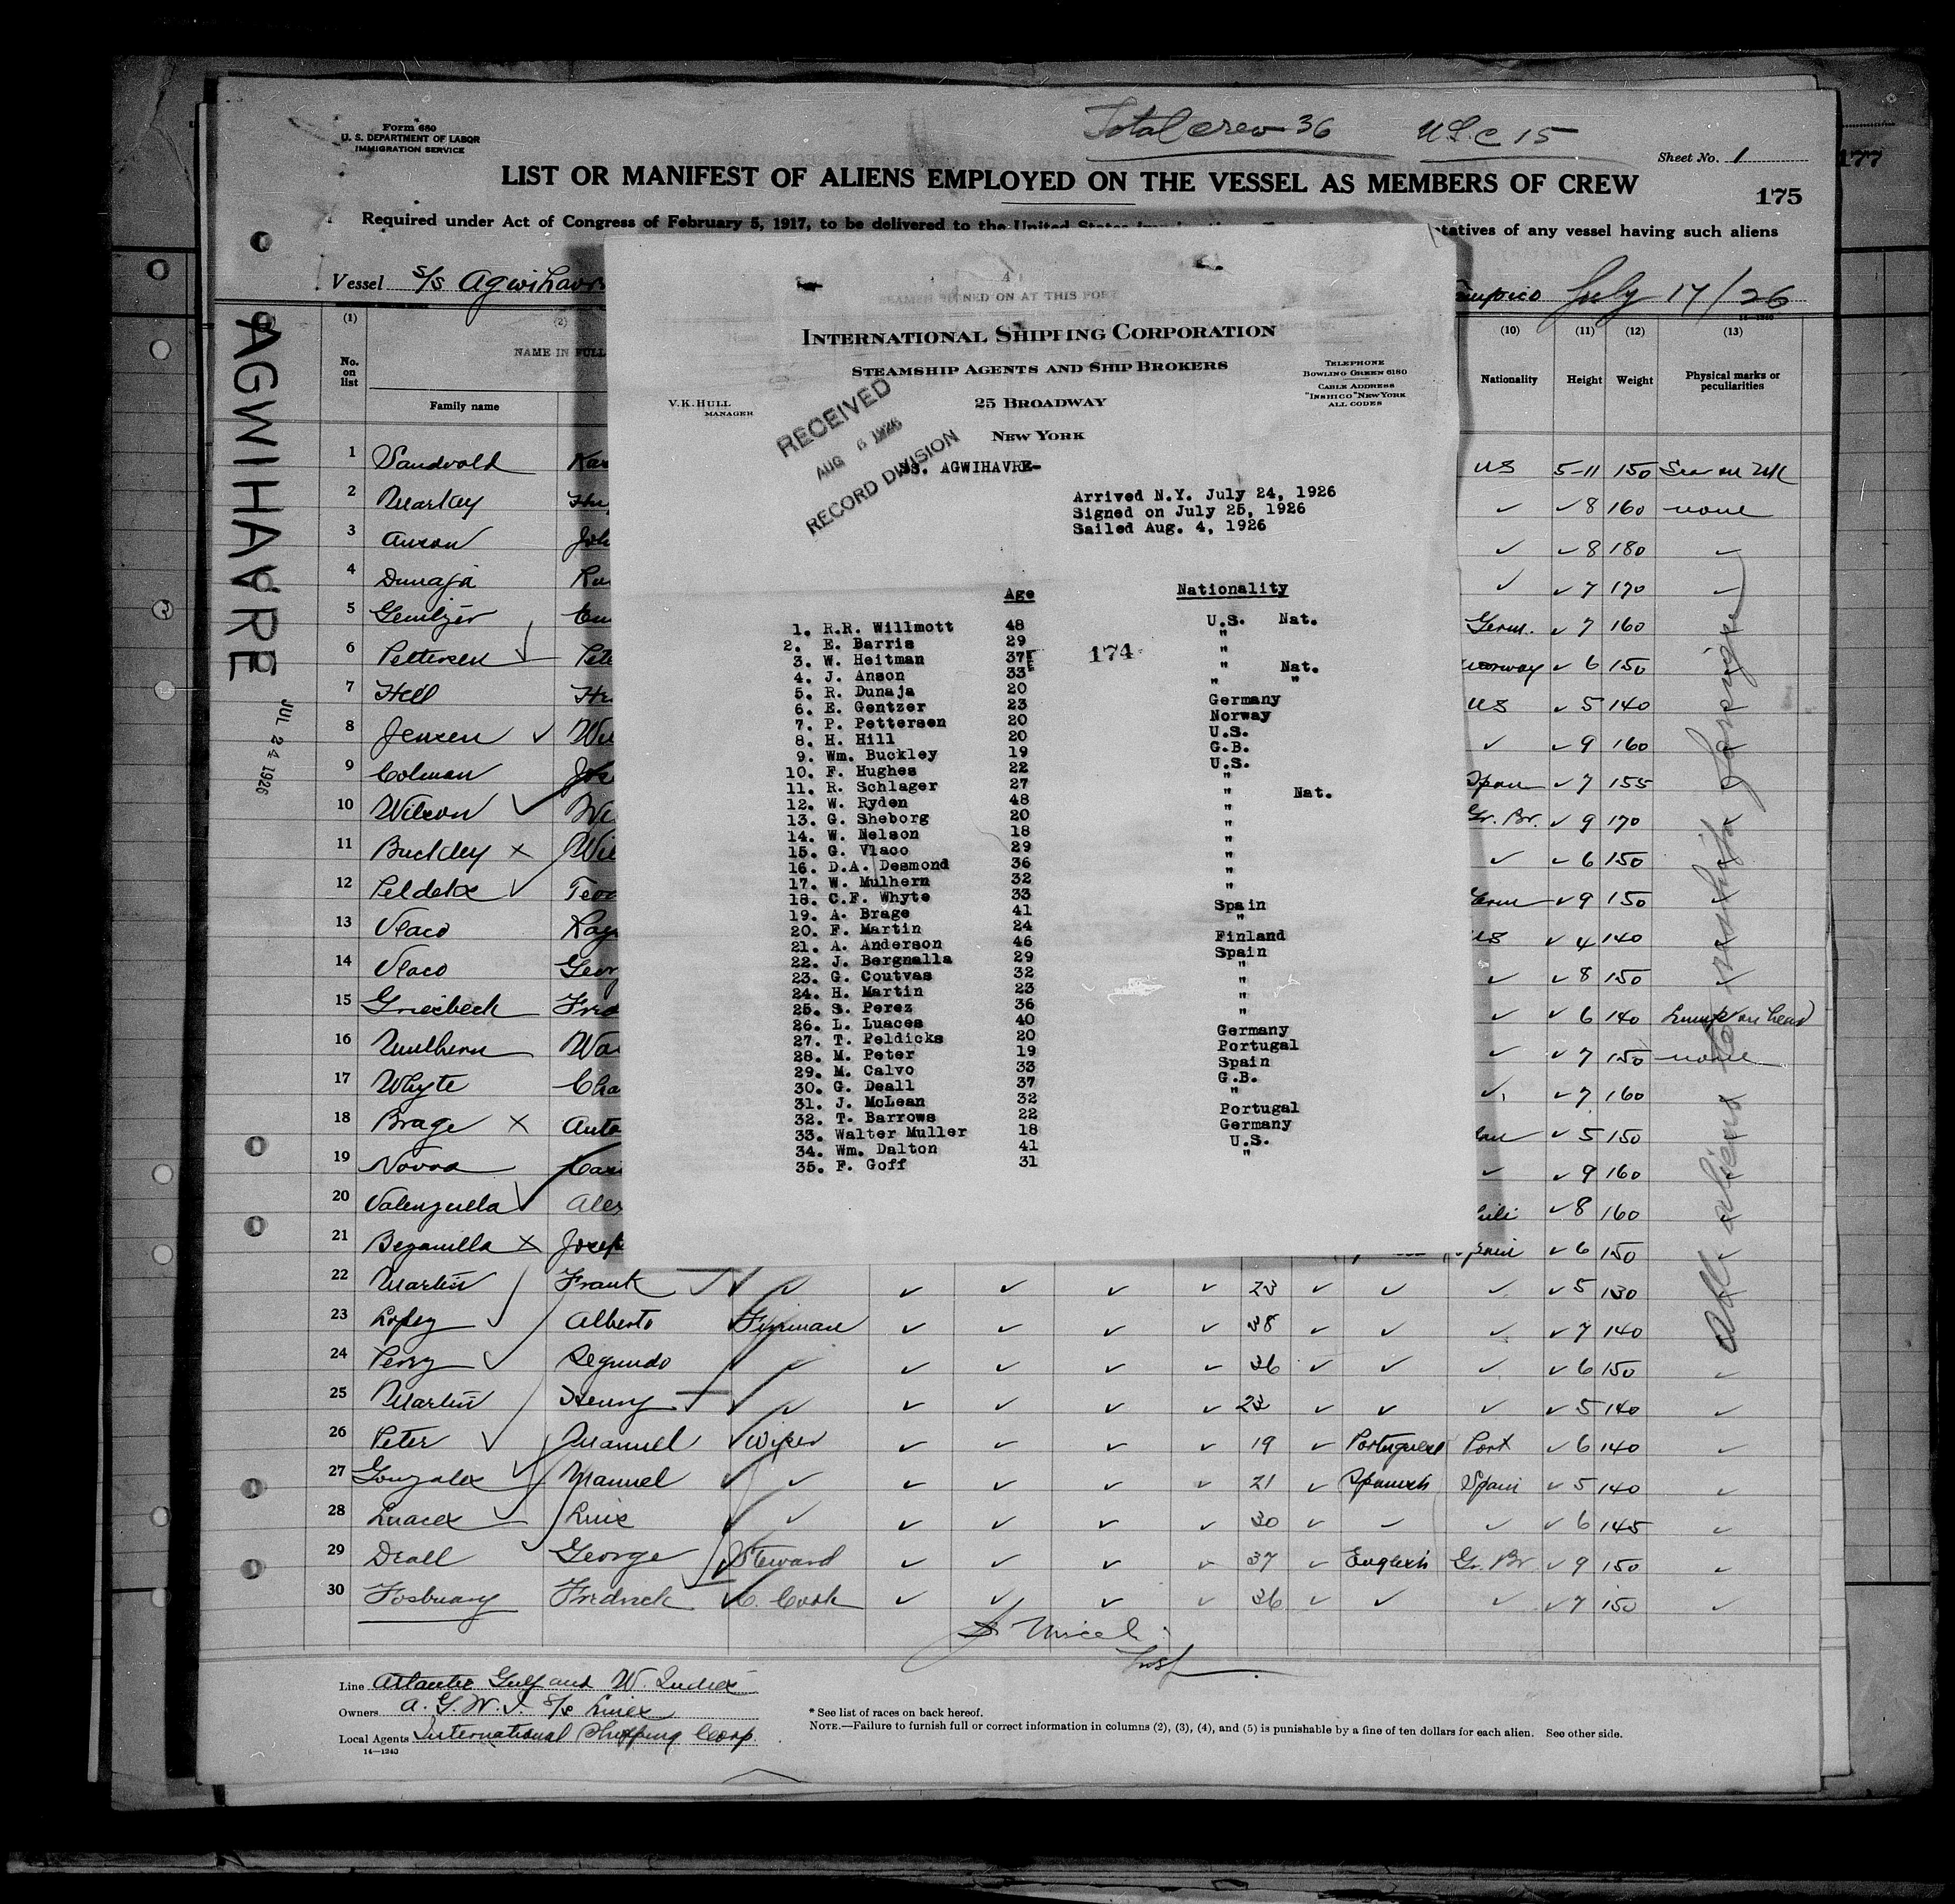 Form 680
U. S. DEPARTMENT OF LABOR
IMMIGRATION SERVICE
Total crew 36 U.S.C 15
Sheet No. 1
177
LIST OR MANIFEST OF ALIENS EMPLOYED ON THE VESSEL AS MEMBERS OF CREW
175
Required under Act of Congress of February 5, 1917, to be delivered to the United States
tatives of any vessel having such aliens
Vessel S/S Agwihavr
July 17/26
AGWIHAVRE
JUL 24 1926
(1) (2) (10) (11) (12) (13)
No. on list
NAME IN FULL
Family name
Nationality Height Weight Physical marks or peculiarities
SEAMEN SIGNED ON AT THIS PORT
INTERNATIONAL SHIPPING CORPORATION
STEAMSHIP AGENTS AND SHIP BROKERS
TELEPHONE
BOWLING GREEN 6180
CABLE ADDRESS
"INSHICO" NEW YORK
ALL CODES
V. K. HULL
MANAGER
25 BROADWAY
NEW YORK
RECEIVED
AUG 6 1926
RECORD DIVISION
SS. AGWIHAVRE-
Arrived N.Y. July 24, 1926
Signed on July 25, 1926
Sailed Aug. 4, 1926
Age Nationality
174
1. R.R. Willmott 48 U.S. Nat.
2. E. Barris 29 "
3. W. Heitman 37 "
4. J. Anson 33 " Nat.
5. R. Dunaja 20 " "
6. E. Gentzer 23 Germany
7. P. Pettersen 20 Norway
8. H. Hill 20 U.S.
9. Wm. Buckley 19 G.B.
10. F. Hughes 22 U.S.
11. R. Schlager 27 "
12. W. Ryden 48 " Nat.
13. G. Sheborg 20 "
14. W. Nelson 18 "
15. G. Vlaco 29 "
16. D.A. Desmond 36 "
17. W. Mulhern 32 "
18. C.F. Whyte 33 "
19. A. Brage 41 Spain
20. F. Martin 24 "
21. A. Anderson 46 Finland
22. J. Bergnalla 29 Spain
23. G. Coutvas 32 "
24. H. Martin 23 "
25. S. Perez 36 "
26. L. Luaces 40 "
27. T. Peldicks 20 Germany
28. M. Peter 19 Portugal
29. M. Calvo 33 Spain
30. G. Deall 37 G.B.
31. J. McLean 32 "
32. T. Barrows 22 Portugal
33. Walter Muller 18 Germany
34. Wm. Dalton 41 U.S.
35. F. Goff 31 "
1 Sandvold Kar US 5-11 150
2 Markey ✓ ✓ 8 160 none
3 Anson Joh ✓ ✓ 8 180 ✓
4 Dunaja Ru ✓ ✓ 7 170 ✓
5 Germ. ✓ 7 160
6 Pettersen Pete Norway ✓ 6 150
7 Hill US ✓ 5 140
8 Jensen ✓ ✓ 9 160
9 Colman Jos Span ✓ 7 155
10 Wilson Wi Gr. Br. ✓ 9 170
11 Buckley × Wil ✓ ✓ 6 150
12 Teod ✓ 9 150
13 Vlaco Ray US ✓ 4 140
14 Vlaco Geor ✓ ✓ 8 150
15 Griesbeck Fred ✓ ✓ 6 140 on head
16 Mulhern Wa ✓ ✓ 7 150 none
17 Whyte Cha ✓ ✓ 7 160
18 Brage × Anto ✓ 5 150
19 Novoa ✓ ✓ 9 160
20 Valenzuella Alex ✓ 8 160
21 Beganilla × Josep ✓ 6 150
22 Martin Frank ✓ ✓ ✓ ✓ ✓ 23 ✓ ✓ ✓ ✓ 5 130
23 Lopez Alberto Fireman ✓ ✓ ✓ ✓ 38 ✓ ✓ ✓ ✓ 7 140
24 Perez Segundo ✓ ✓ ✓ ✓ ✓ 36 ✓ ✓ ✓ ✓ 6 150 ✓
25 Martin Henry ✓ ✓ ✓ ✓ ✓ 23 ✓ ✓ ✓ ✓ 5 140 ✓
26 Peter Manuel Wiper ✓ ✓ ✓ ✓ 19 ✓ Portuguese Port ✓ 6 140 ✓
27 Gonzalex Manuel ✓ ✓ ✓ ✓ ✓ 21 ✓ Spanish Spain ✓ 5 140 ✓
28 Luacex Luis ✓ ✓ ✓ ✓ ✓ 30 ✓ ✓ ✓ ✓ 6 145 ✓
29 Deall George Steward ✓ ✓ ✓ ✓ 37 ✓ English Gr. Br ✓ 9 150 ✓
30 Fosbruary Fredrick C. Cook ✓ ✓ ✓ ✓ 36 ✓ ✓ ✓ ✓ 7 150 ✓
All aliens to reship foreign
Line Atlantic Gulf and W. Indies
Owners A. G. W. I. S/S Lines
Local Agents International Shipping Corp.
14—1240
* See list of races on back hereof.
NOTE.—Failure to furnish full or correct information in columns (2), (3), (4), and (5) is punishable by a fine of ten dollars for each alien. See other side.